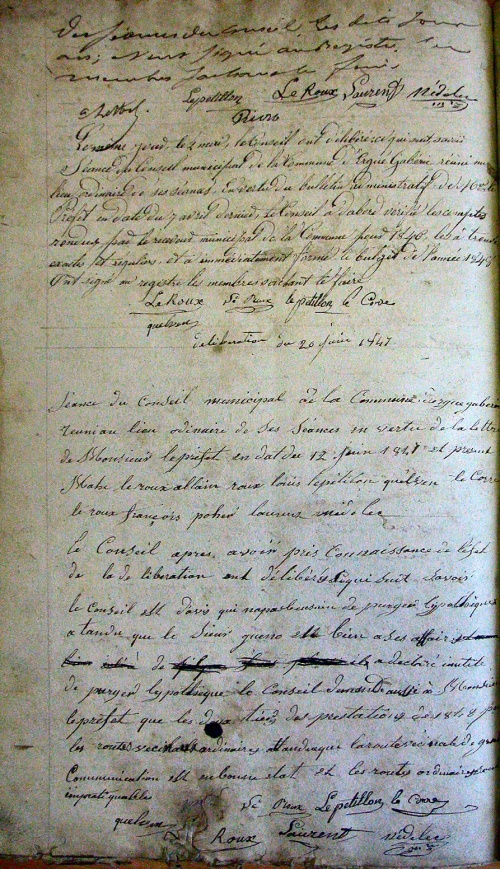 des séances du Conseil les dits jour
ans, et ont signé au Registre. Les
membres sachant le faire
Lepetillon Le Roux Laurent Nédelec
L'an même jour, le 2 mai, le Conseil ont délibéré ce qui suit, savoir
Séance du Conseil municipal de la Commune d'Ergué Gabéric réuni au
lieu ordinaire de ses séances, en vertu du bulletin administratif de
Préfet en date du 7 avril dernier, le Conseil a d'abord vérifié les comptes
rendus par le receveur municipal de la Commune pour 1846, les a trouvé
exacts et reguliers, et a immédiatement formé le budget de l'année 1848
Ont signé au registre les membres sachant le faire
Le Roux Lepetillon le Corre
quelven
deliberation du 20 juin 1847
Séance du Conseil municipal de la Commune d'ergue gaberic
reuni au lieu odinaire de ses séances en vertu de la lettre
de Monsieur le préfet en dat du 12 juin 1847 et present
Mahe le roux allain roux louis lepetillon quelven le Corre
le roux françois poher laurent nédelec
le Conseil apres avoir pris Connaissance de l'efet
de la de liberation ont délibéré ce qui suit Savoir
le Conseil est d'avis qui napas besuin de purger lypothèque
atandu que le Sieur est bien a ses affair
de a declaré inutile
de purger lypothèque le Conseil aussi à Monsieur
le préfet que les deux tiers des prestations de 1848
les routes vicinales ordinaires attandu que la route vicinale de grande
Communication est en bonne etat et les routes ordinaires
impratiquables
Lepetillon le Corre
quelven
Roux Laurent nédelec